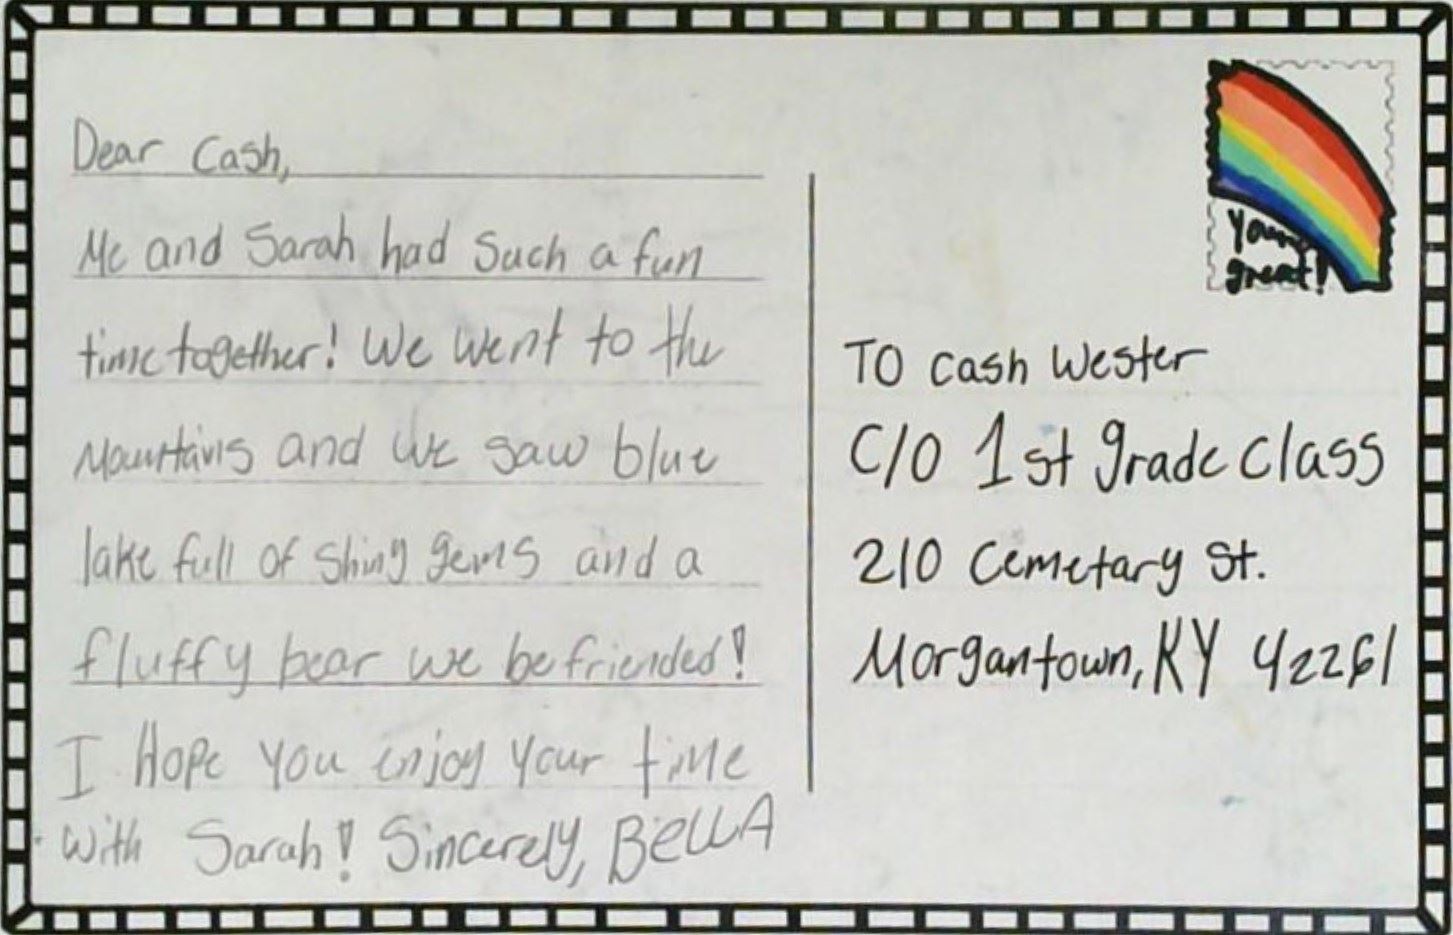 Dear Cash,
Me and Sarah had such a fun
time together! We went to the
Mountains and we saw blue
lake full of shiny gems and a
fluffy bear we befriended!
I Hope you enjoy your time
with Sarah! Sincerely, BellA
Your
great!
TO Cash Wester
C/O 1st grade class
210 Cemetary St.
Morgantown, KY 42261